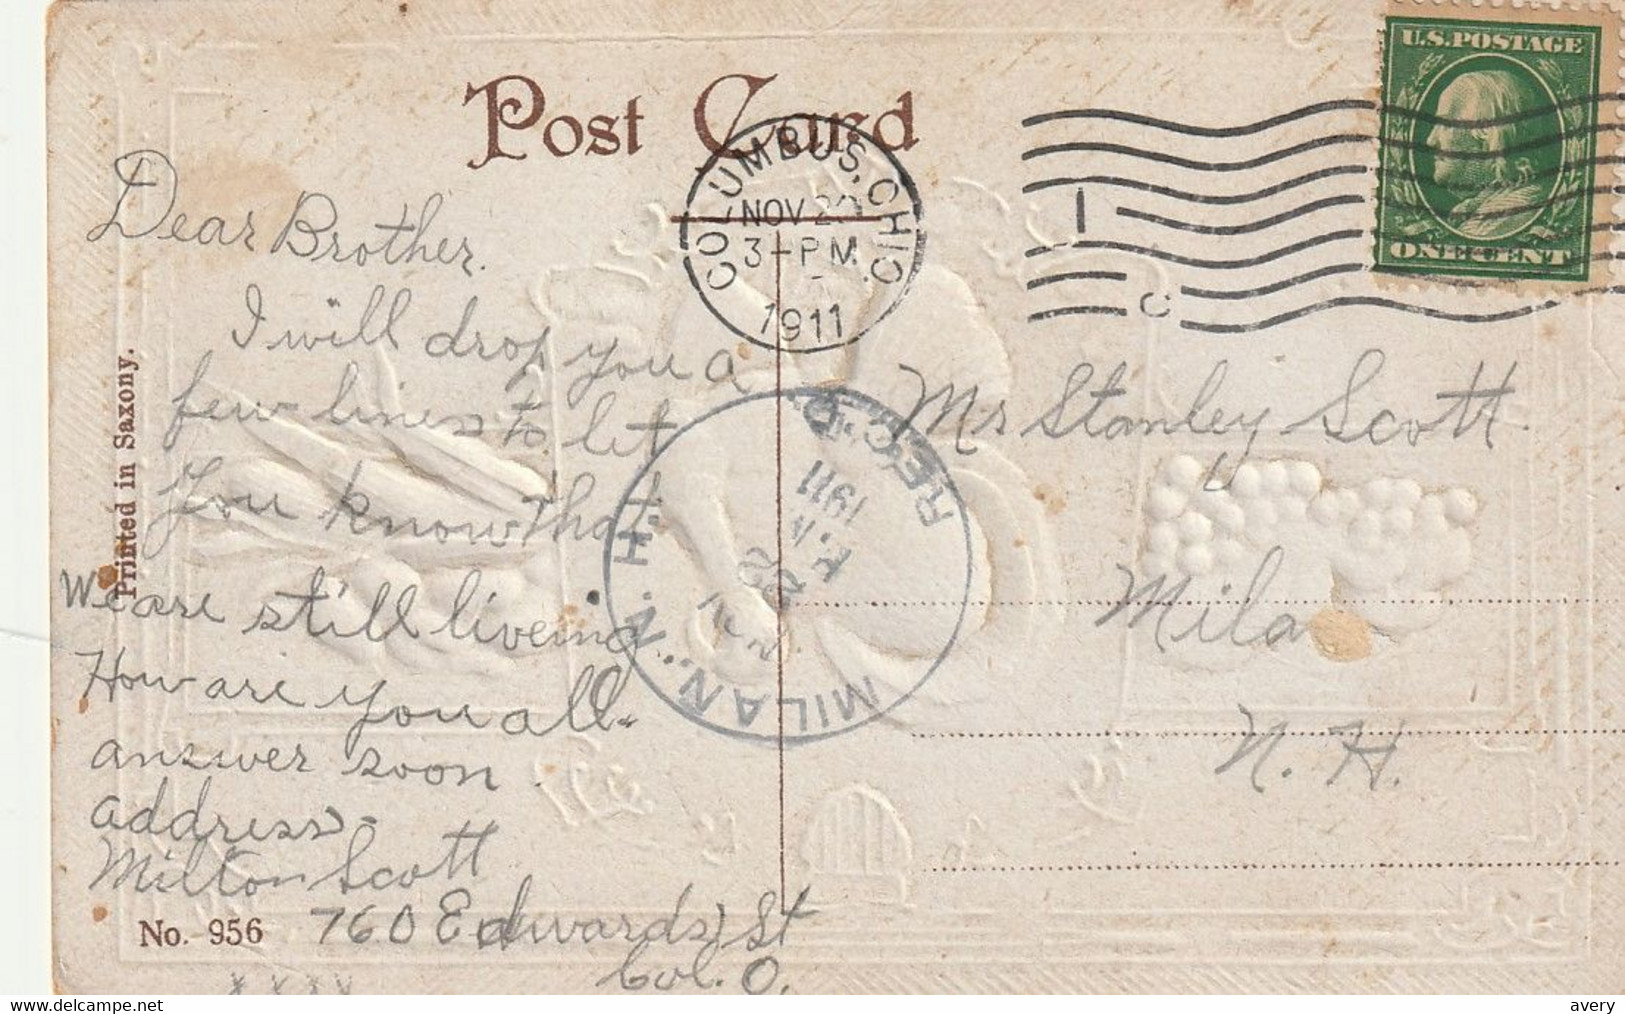 Post Card
U.S. POSTAGE
ONE CENT
COLUMBUS, OHIO
NOV
3-PM
1911
1
C
Dear Brother.
I will drop you a
few lines to let
you know that
we are still liveing.
How are you all.
answer soon
address-
Milton Scott
760 Edwards St
Col. O.
x x x x
Printed in Saxony.
No. 956
MILAN, N. H.
REC'D.
1911
Mr Stanley Scott.
Mila
N. H.
delcampe.net
avery